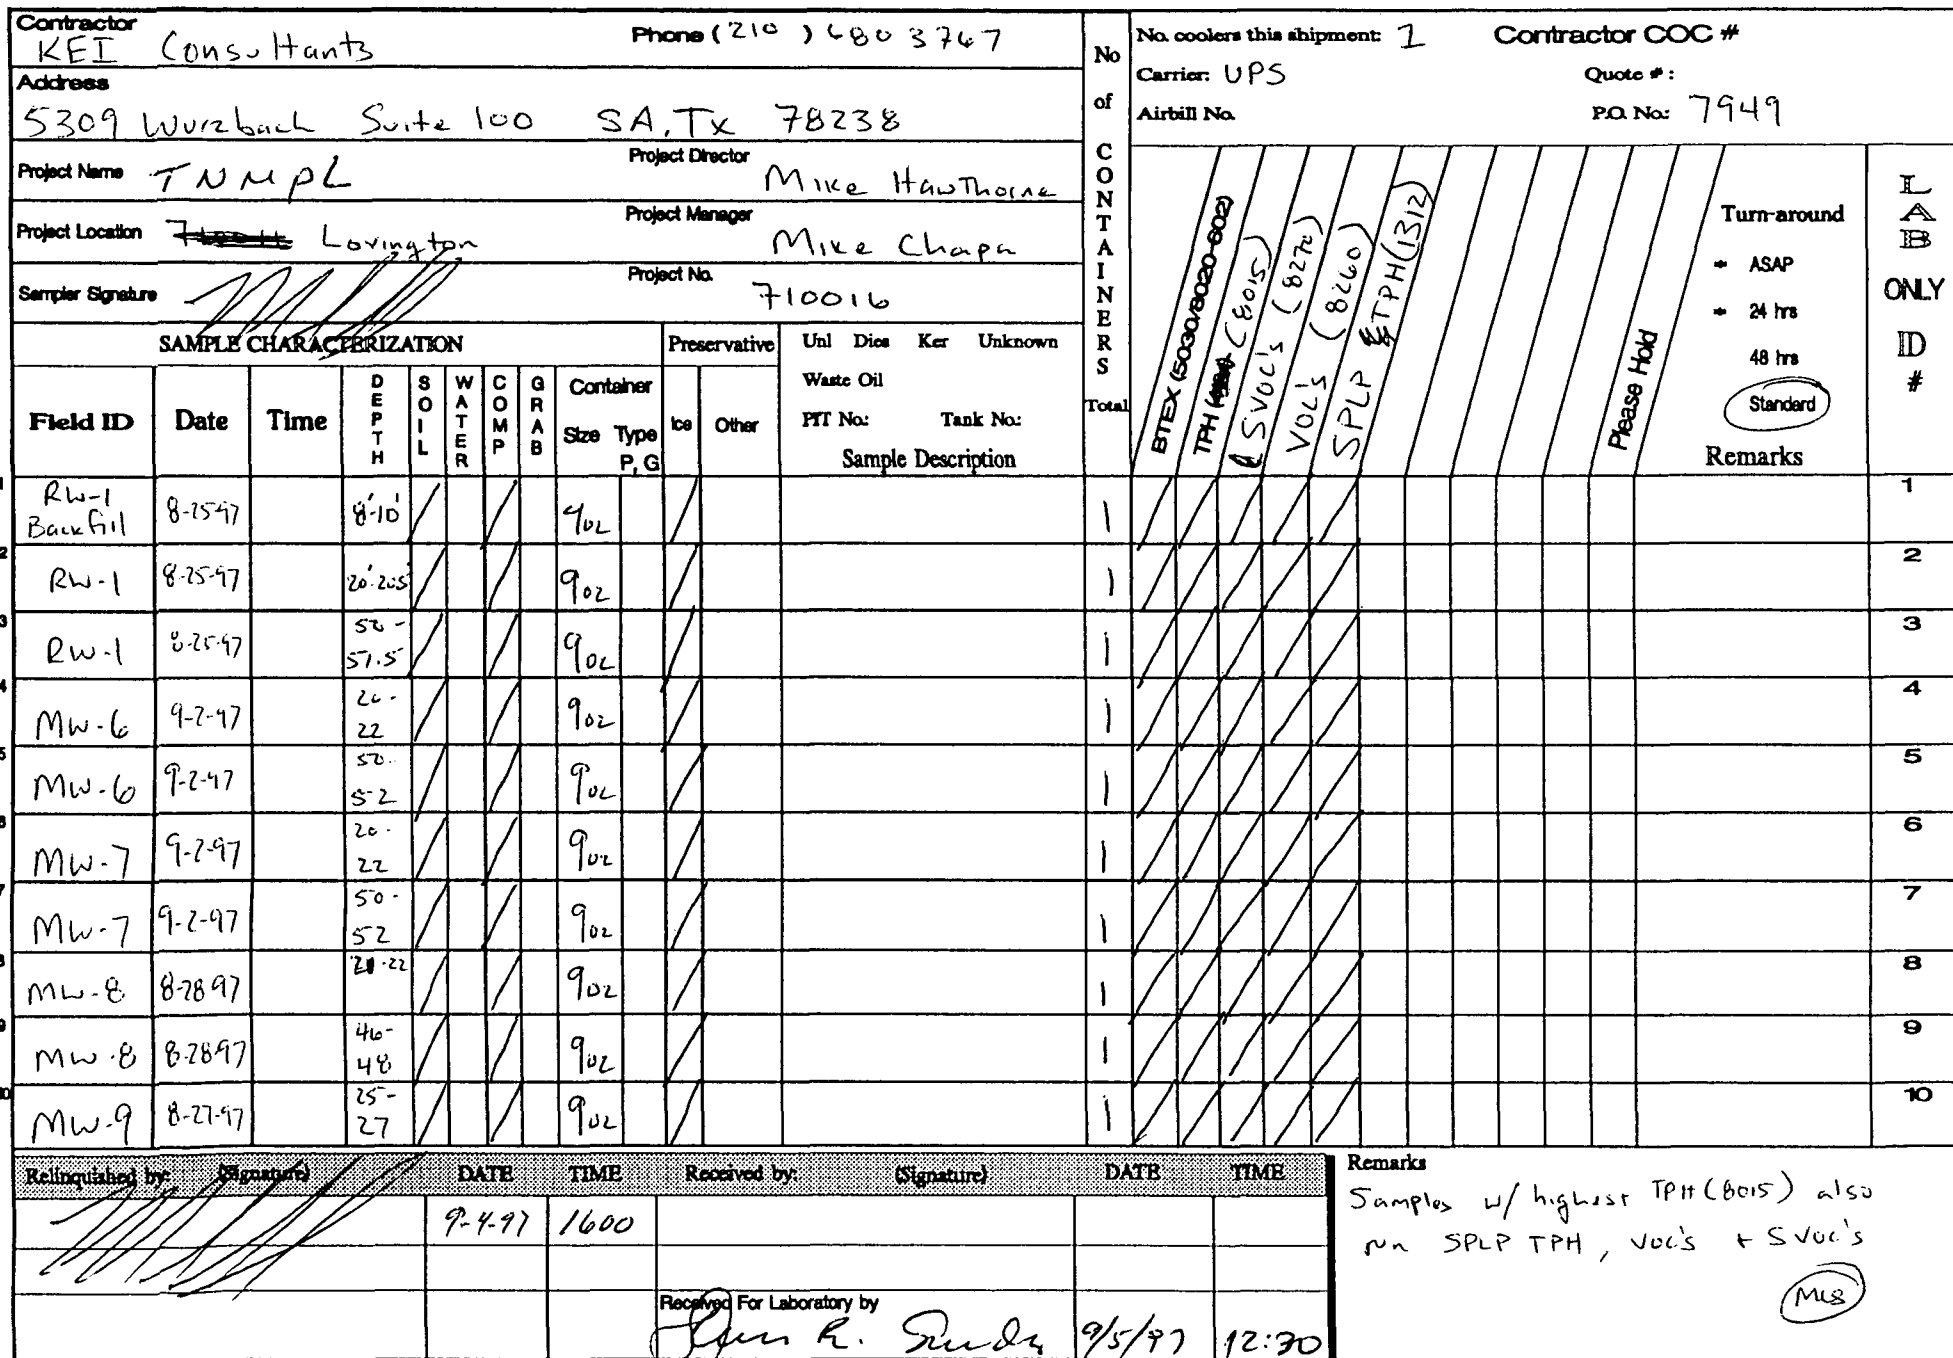 Contractor KEI Consultants Phone (210) 680 3767
Address
5309 Wurzbach Suite 100 SA, Tx 78238
Project Name TNMPL Project Director Mike Hawthorne
Project Location Lovington Project Manager Mike Chapa
Sampler Signature Project No. 710016
No of CONTAINERS Total
No. coolers this shipment: 1 Contractor COC #
Carrier: UPS Quote #:
Airbill No. P.O. No.: 7949
BTEX (5030/8020-602)
TPH (8015)
SVOC's (8270)
VOC's (8260)
SPLP TPH (1312)
Please Hold
Turn-around
* ASAP
* 24 hrs
48 hrs
Standard
Remarks
LAB ONLY ID #
SAMPLE CHARACTERIZATION Preservative Unl Dies Ker Unknown
Waste Oil
PIT No: Tank No:
Sample Description
Field ID Date Time DEPTH SOIL WATER COMP GRAB Container Size Type P, G Ice Other
1 RW-1 Backfill 8-25-97 8'-10' / / 9oz / 1 / / / / / 1
2 RW-1 8-25-97 20'-20.5' / / 9oz / 1 / / / / / 2
3 RW-1 8-25-97 50-51.5 / / 9oz / 1 / / / / / 3
4 MW-6 9-2-97 20-22 / / 9oz / 1 / / / / / 4
5 MW-6 9-2-97 50-52 / / 9oz / 1 / / / / / 5
6 MW-7 9-2-97 20-22 / / 9oz / 1 / / / / / 6
7 MW-7 9-2-97 50-52 / / 9oz / 1 / / / / / 7
8 MW-8 8-28-97 -22 / / 9oz / 1 / / / / / 8
9 MW-8 8-28-97 46-48 / / 9oz / 1 / / / / / 9
10 MW-9 8-27-97 25-27 / / 9oz / 1 / / / / / 10
Relinquished by: (Signature) DATE TIME Received by: (Signature) DATE TIME
9-4-97 1600
Received For Laboratory by
R. 9/5/97 12:30
Remarks
Samples w/ highest TPH (8015) also
run SPLP TPH, VOC's + SVOC's